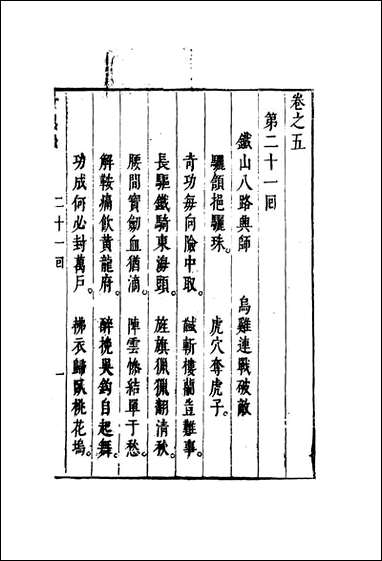 卷之五
第二十一回
鐵山八路興師　烏雞連戰破敵
驪頷挹驪珠。　虎穴奪虎子。
奇功每向險中取。　馘斬樓蘭豈難事。
長驅鐵騎東海頭。　旌旗獵獵翻清秋。
腰間寶劍血猶滴。　陣雲慘結單于愁。
解鞍痛飲黃龍府。　醉挽吳鈎自起舞。
功成何必封萬戶。　拂衣歸臥桃花塢。
二十一回
一